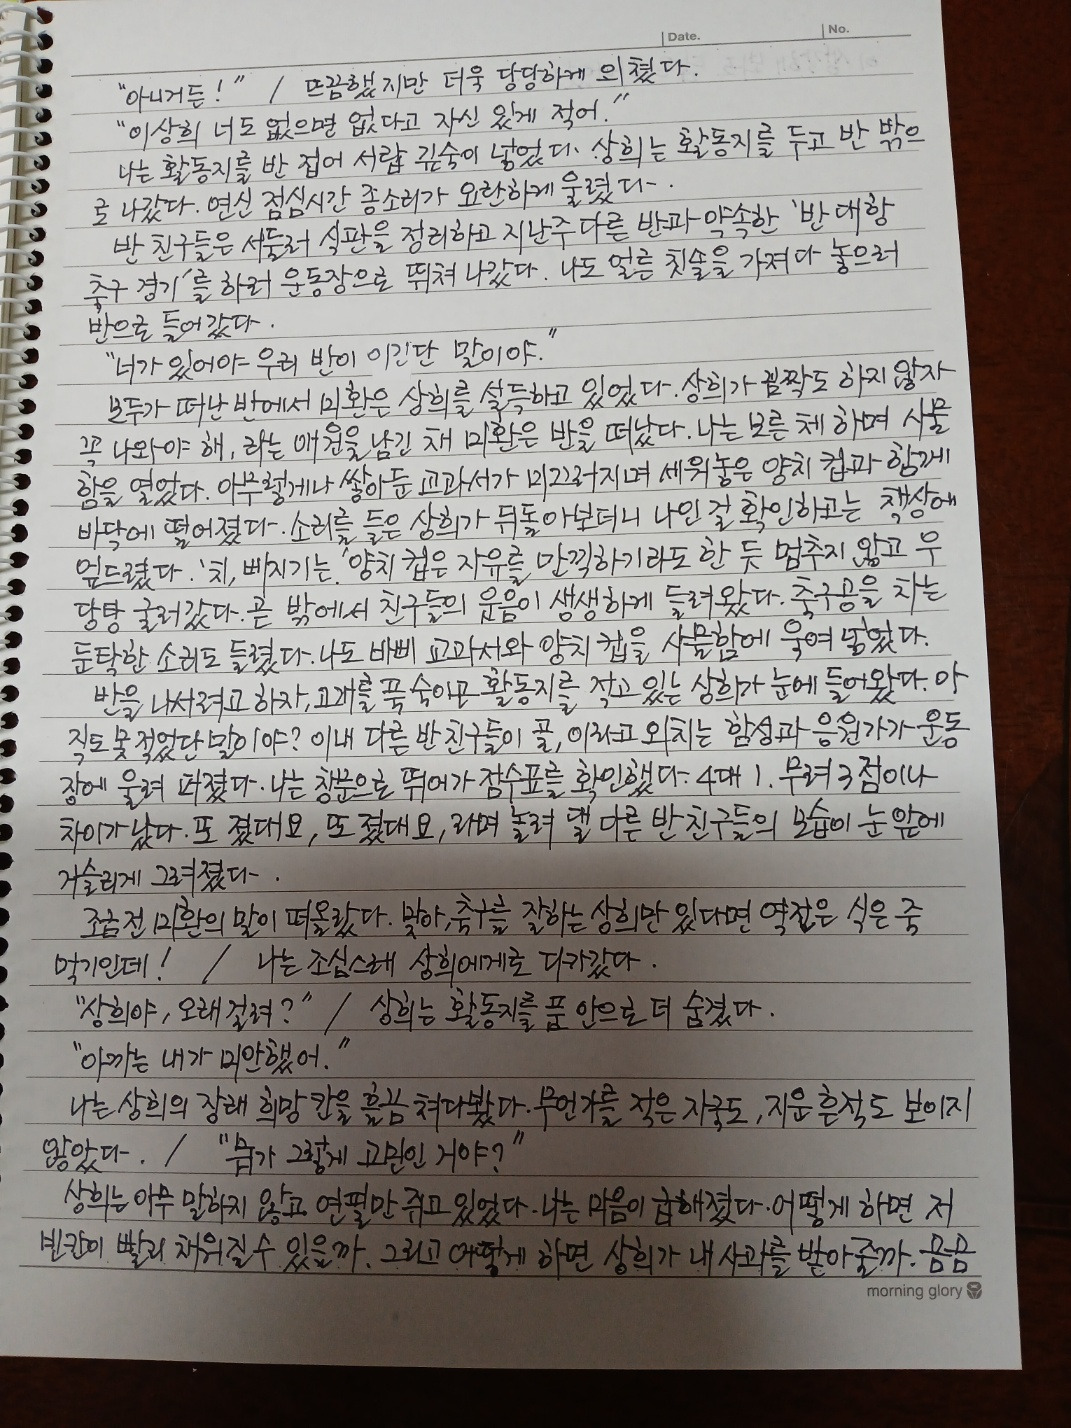 Date.
No.
"아니거든!" / 뜨끔했지만 더욱 당당하게 외쳤다.
"이상희 너도 없으면 없다고 자신 있게 적어."
나는 활동지를 반 접어 서랍 깊숙이 넣었다. 상희는 활동지를 두고 반 밖으
로 나갔다. 연신 점심시간 종소리가 요란하게 울렸다.
반 친구들은 서둘러 식판을 정리하고 지난주 다른 반과 약속한 '반 대항
축구 경기'를 하러 운동장으로 뛰쳐 나갔다. 나도 얼른 칫솔을 가져다 놓으러
반으로 들어갔다.
"너가 있어야 우리 반이 이긴단 말이야."
모두가 떠난 반에서 미환은 상희를 설득하고 있었다. 상희가 꿈짝도 하지 않자
꼭 나와야 해, 라는 애원을 남긴 채 미환은 반을 떠났다. 나는 모른 체 하며 사물
함을 열었다. 아무렇게나 쌓아둔 교과서가 미끄러지며 세워놓은 양치 컵과 함께
바닥에 떨어졌다. 소리를 들은 상희가 뒤돌아보더니 나인 걸 확인하고는 책상에
엎드렸다. '치, 삐지기는.' 양치 컵은 자유를 만끽하기라도 한 듯 멈추지 않고 우
당탕 굴러갔다. 곧 밖에서 친구들의 웃음이 생생하게 들려왔다. 축구공을 차는
둔탁한 소리도 들렸다. 나도 바삐 교과서와 양치 컵을 사물함에 욱여 넣었다.
반을 나서려고 하자, 고개를 푹 숙이곤 활동지를 적고 있는 상희가 눈에 들어왔다. 아
직도 못 적었단 말이야? 이내 다른 반 친구들이 골, 이라고 외치는 함성과 응원가가 운동
장에 울려 퍼졌다. 나는 창문으로 뛰어가 점수표를 확인했다. 4대 1. 무려 3점이나
차이가 났다. 또 졌대요, 또 졌대요, 라며 놀려 댈 다른 반 친구들의 모습이 눈 앞에
거슬리게 그려졌다.
조금 전 미환의 말이 떠올랐다. 맞아, 축구를 잘하는 상희만 있다면 역전은 식은 죽
먹기인데! / 나는 조심스레 상희에게로 다가갔다.
"상희야, 오래 걸려?" / 상희는 활동지를 품 안으로 더 숨겼다.
"아까는 내가 미안했어."
나는 상희의 장래 희망 칸을 흘끔 쳐다봤다. 무언가를 적은 자국도, 지운 흔적도 보이지
않았다. / "뭐가 그렇게 고민인 거야?"
상희는 아무 말하지 않고 연필만 쥐고 있었다. 나는 마음이 급해졌다. 어떻게 하면 저
빈칸이 빨리 채워질 수 있을까. 그리고 어떻게 하면 상희가 내 사과를 받아줄까. 끔끔
morning glory